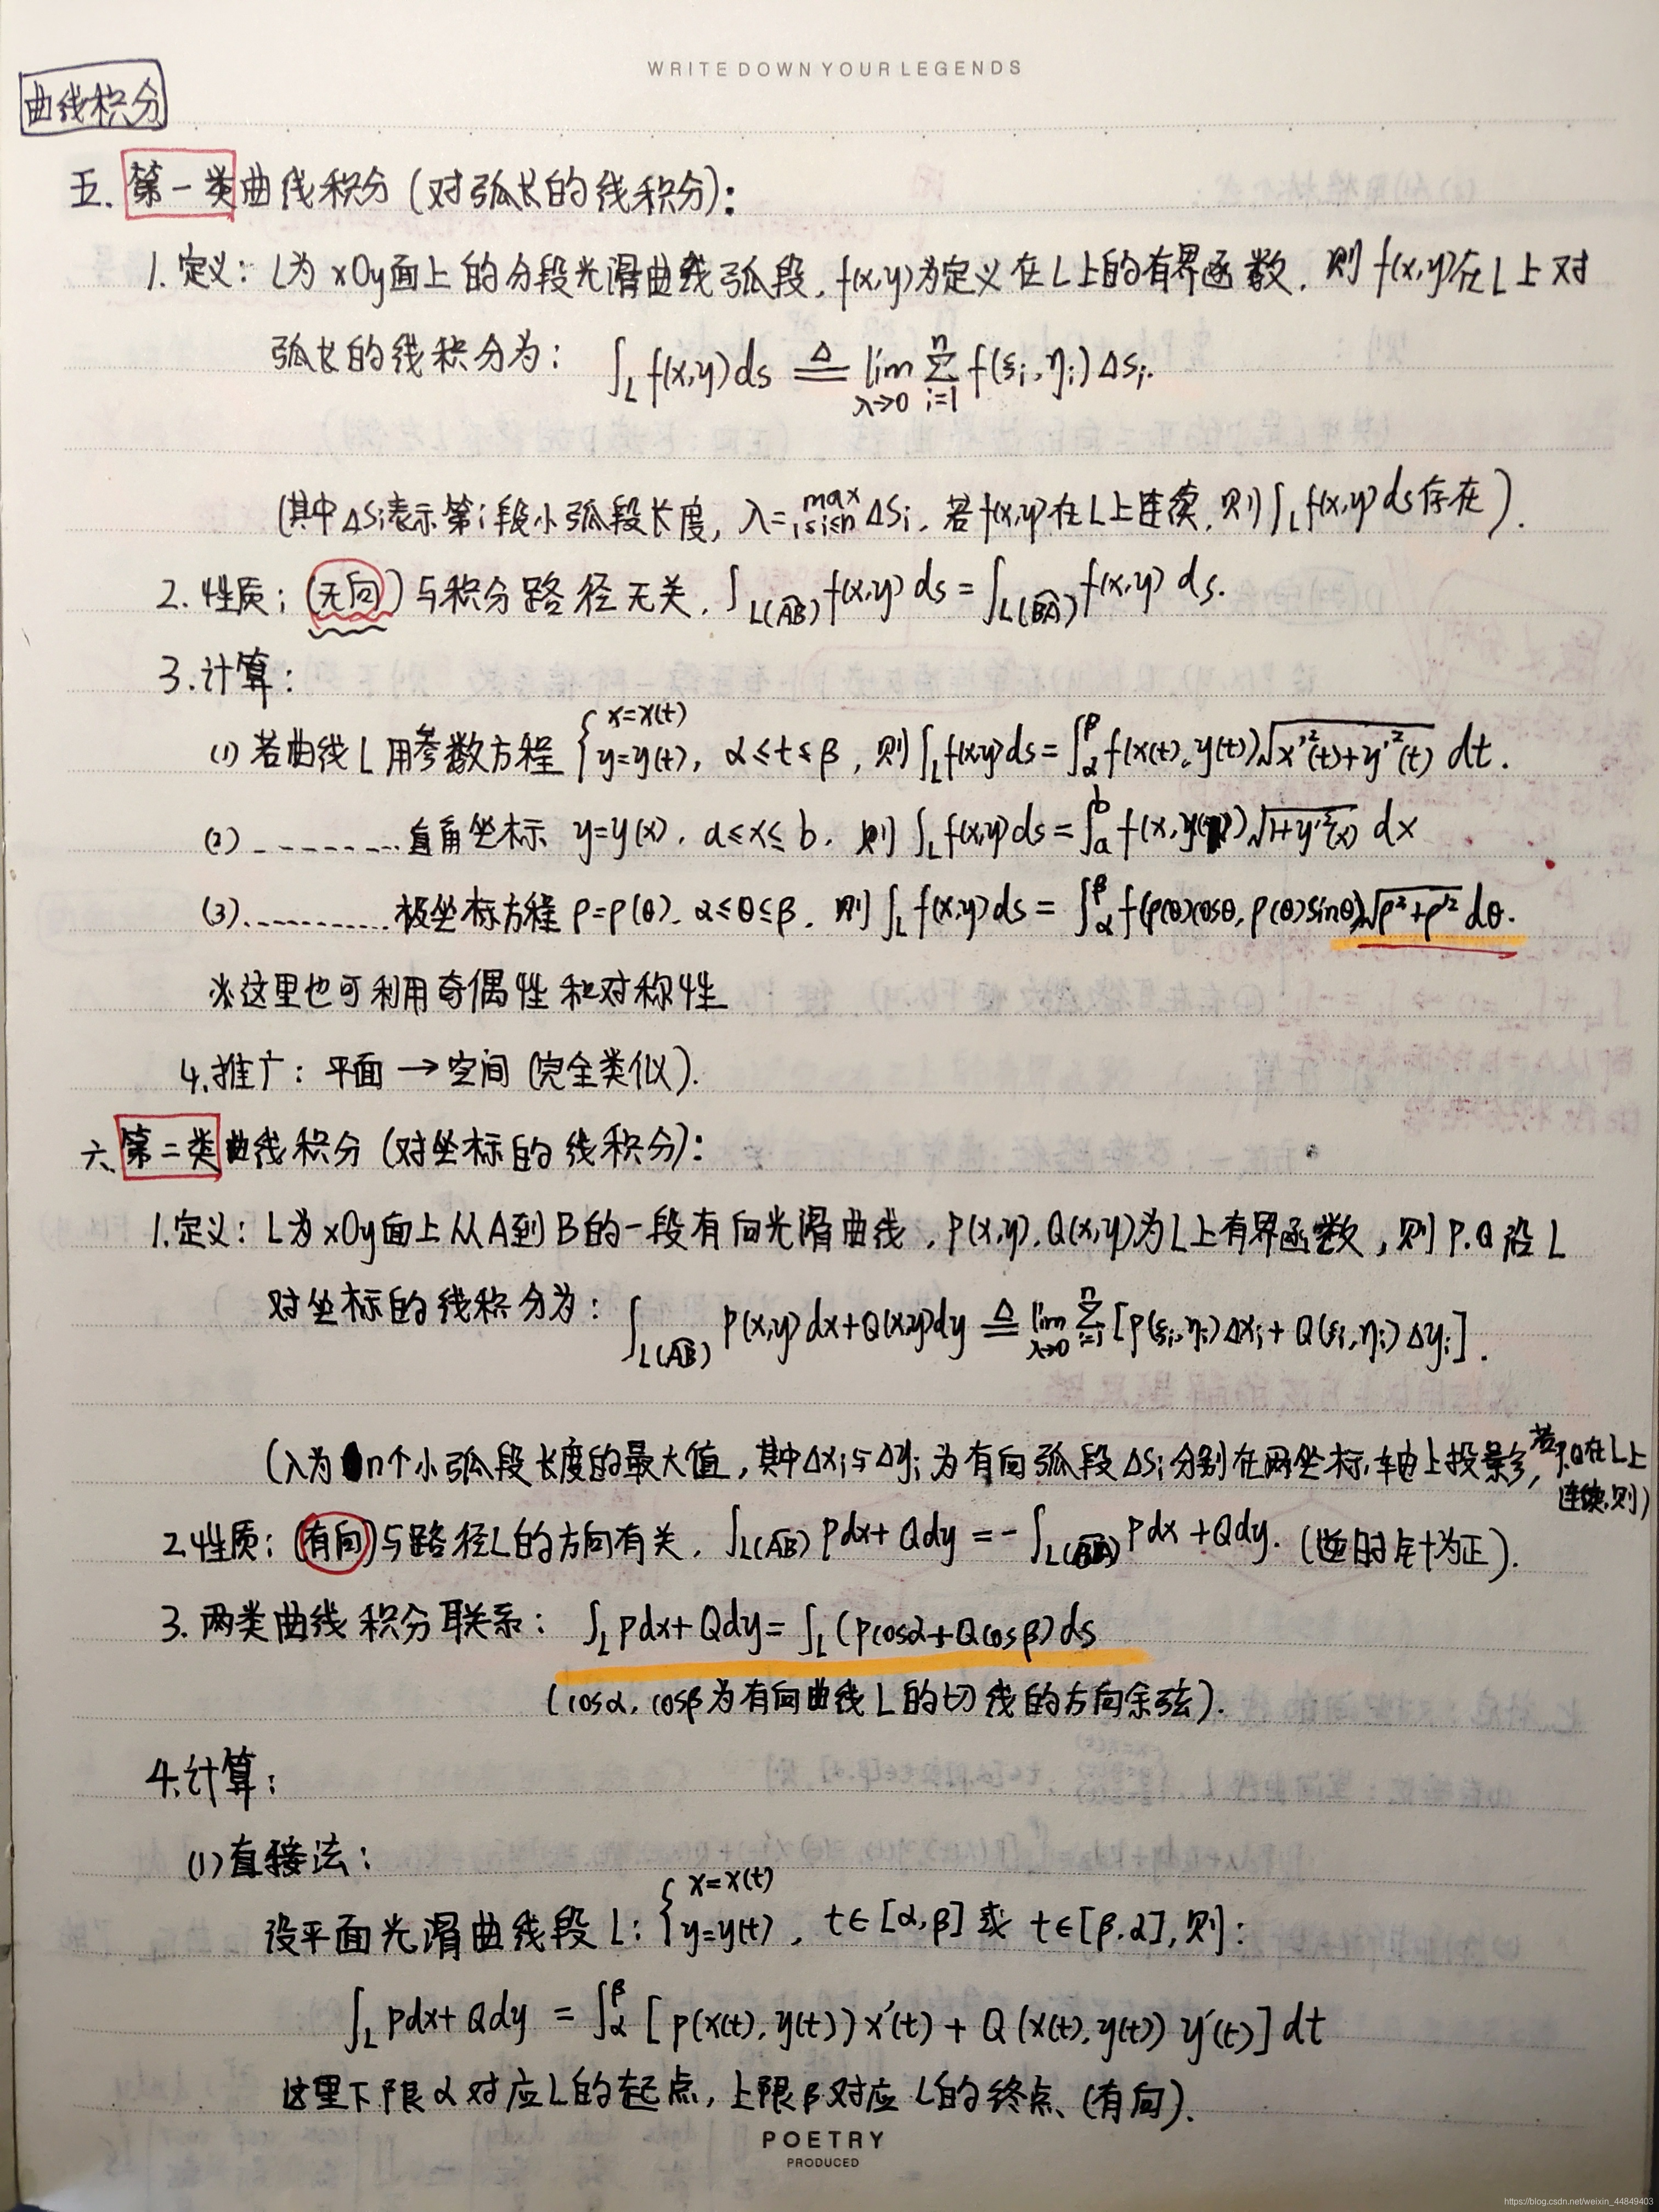 WRITE DOWN YOUR LEGENDS
曲线积分
五、第一类曲线积分(对弧长的线积分):
1.定义: L为xOy面上的分段光滑曲线弧段, f(x,y)为定义在L上的有界函数, 则f(x,y)在L上对
弧长的线积分为: ∫_L f(x,y)ds ≜ lim_{λ→0} Σ_{i=1}^{n} f(ξi,ηi)Δsi.
(其中ΔSi表示第i段小弧段长度, λ=max_{1≤i≤n} ΔSi, 若f(x,y)在L上连续, 则∫_L f(x,y)ds存在).
2.性质: (无向)与积分路径无关, ∫_{L(AB)} f(x,y)ds = ∫_{L(BA)} f(x,y)ds.
3.计算:
(1)若曲线L用参数方程 {x=x(t) y=y(t), α≤t≤β, 则∫_L f(x,y)ds = ∫_α^β f(x(t),y(t))√(x'²(t)+y'²(t)) dt.
(2)----------直角坐标 y=y(x), a≤x≤b, 则∫_L f(x,y)ds = ∫_a^b f(x,y(x))√(1+y'²(x)) dx
(3)..........极坐标方程 ρ=ρ(θ), α≤θ≤β, 则∫_L f(x,y)ds = ∫_α^β f(ρ(θ)cosθ, ρ(θ)sinθ)√(ρ²+ρ'²) dθ.
※这里也可利用奇偶性和对称性
4.推广: 平面→空间(完全类似).
六、第二类曲线积分(对坐标的线积分):
1.定义: L为xOy面上从A到B的一段有向光滑曲线, P(x,y), Q(x,y)为L上有界函数, 则P.Q沿L
对坐标的线积分为: ∫_{L(AB)} P(x,y)dx+Q(x,y)dy ≜ lim_{λ→0} Σ_{i=1}^{n} [P(ξi,ηi)Δxi+Q(ξi,ηi)Δyi].
(λ为n个小弧段长度的最大值, 其中Δxi与Δyi为有向弧段ΔSi分别在两坐标轴上投影, 若P.Q在L上
连续,则)
2.性质: (有向)与路径L的方向有关, ∫_{L(AB)} Pdx+Qdy = -∫_{L(BA)} Pdx+Qdy. (逆时针为正).
3.两类曲线积分联系: ∫_L Pdx+Qdy = ∫_L (Pcosα+Qcosβ)ds
(cosα, cosβ为有向曲线L的切线的方向余弦).
4.计算:
(1)直接法:
设平面光滑曲线段L: {x=x(t) y=y(t), t∈[α,β]或t∈[β,α], 则:
∫_L Pdx+Qdy = ∫_α^β [P(x(t),y(t))x'(t)+Q(x(t),y(t))y'(t)]dt
这里下限α对应L的起点, 上限β对应L的终点、(有向).
POETRY
PRODUCED
https://blog.csdn.net/weixin_44849403